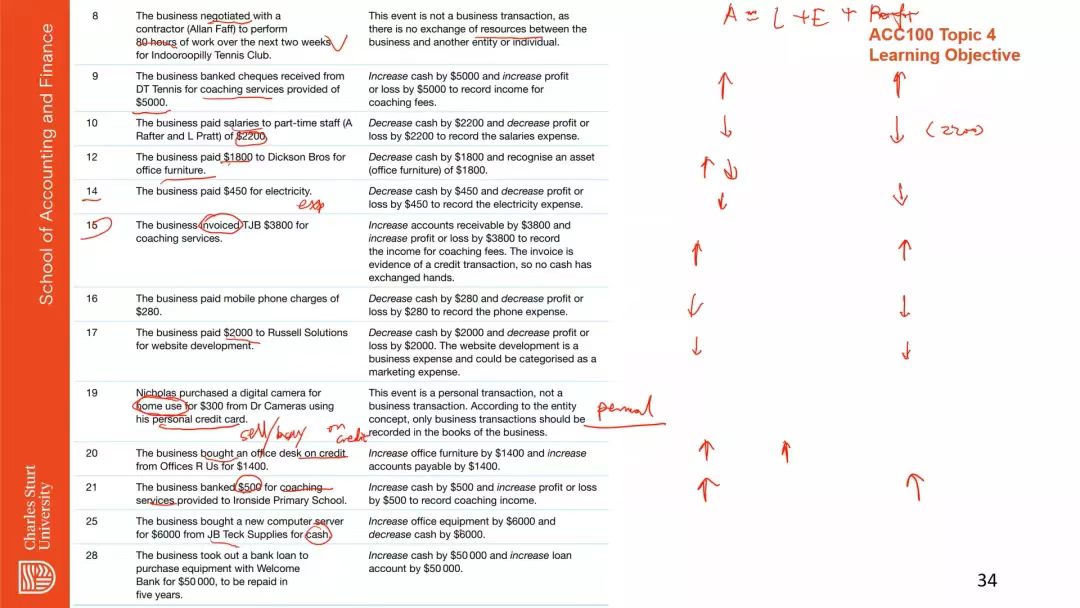 A = L + E + Profit
ACC100 Topic 4
Learning Objective
School of Accounting and Finance
Charles Sturt
University
8
The business negotiated with a
contractor (Allan Faff) to perform
80 hours of work over the next two weeks
for Indooroopilly Tennis Club.
This event is not a business transaction, as
there is no exchange of resources between the
business and another entity or individual.
9
The business banked cheques received from
DT Tennis for coaching services provided of
$5000.
Increase cash by $5000 and increase profit
or loss by $5000 to record income for
coaching fees.
10
The business paid salaries to part-time staff (A
Rafter and L Pratt) of $2200.
Decrease cash by $2200 and decrease profit or
loss by $2200 to record the salaries expense.
(2200)
12
The business paid $1800 to Dickson Bros for
office furniture.
Decrease cash by $1800 and recognise an asset
(office furniture) of $1800.
14
The business paid $450 for electricity.
exp
Decrease cash by $450 and decrease profit or
loss by $450 to record the electricity expense.
15
The business invoiced TJB $3800 for
coaching services.
Increase accounts receivable by $3800 and
increase profit or loss by $3800 to record
the income for coaching fees. The invoice is
evidence of a credit transaction, so no cash has
exchanged hands.
16
The business paid mobile phone charges of
$280.
Decrease cash by $280 and decrease profit or
loss by $280 to record the phone expense.
17
The business paid $2000 to Russell Solutions
for website development.
Decrease cash by $2000 and decrease profit or
loss by $2000. The website development is a
business expense and could be categorised as a
marketing expense.
19
Nicholas purchased a digital camera for
home use for $300 from Dr Cameras using
his personal credit card.
This event is a personal transaction, not a
business transaction. According to the entity
concept, only business transactions should be
recorded in the books of the business.
personal
sell/buy on
credit
20
The business bought an office desk on credit
from Offices R Us for $1400.
Increase office furniture by $1400 and increase
accounts payable by $1400.
21
The business banked $500 for coaching
services provided to Ironside Primary School.
Increase cash by $500 and increase profit or loss
by $500 to record coaching income.
25
The business bought a new computer server
for $6000 from JB Teck Supplies for cash.
Increase office equipment by $6000 and
decrease cash by $6000.
28
The business took out a bank loan to
purchase equipment with Welcome
Bank for $50 000, to be repaid in
five years.
Increase cash by $50 000 and increase loan
account by $50 000.
34